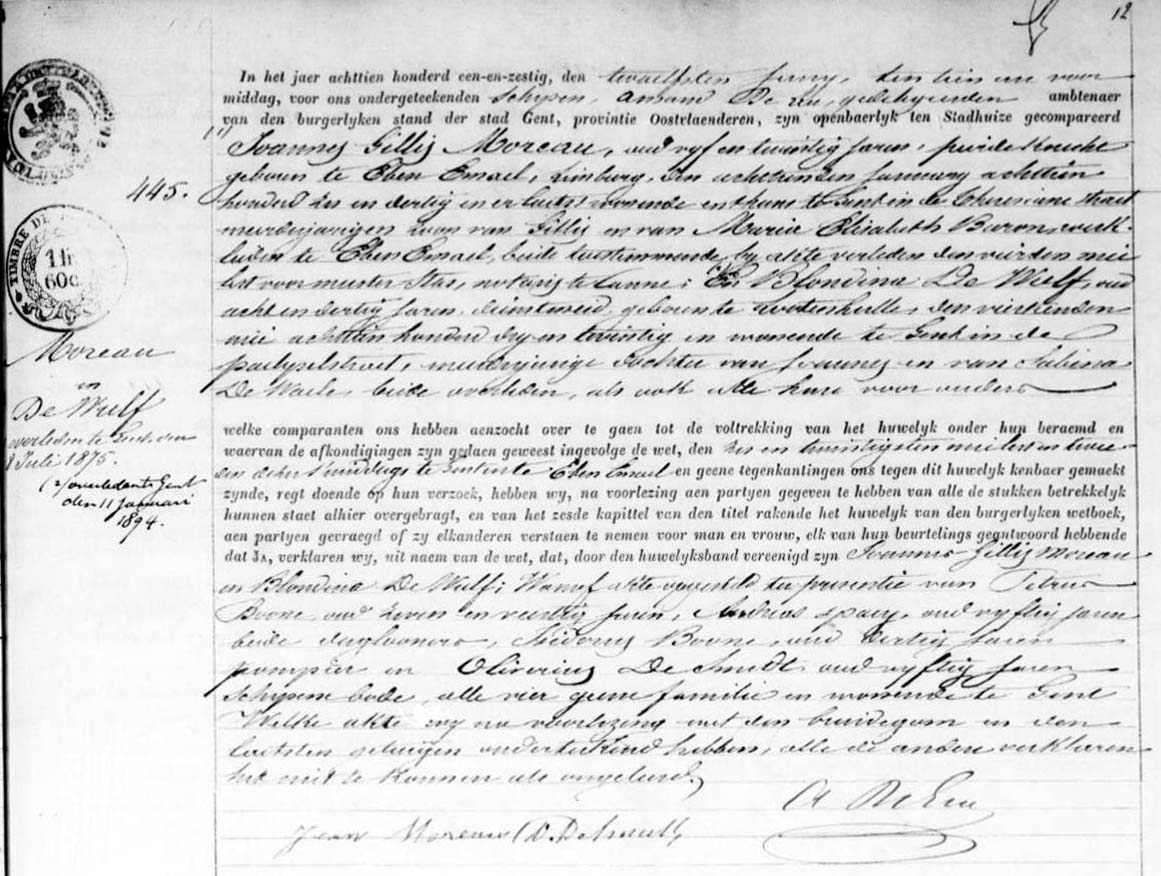 12
In het jaer achttien honderd een-en-zestig, den twaelfden Juny, ten tien ure voor
middag, voor ons ondergeteekenden Schepen, ambtenaer
van den burgerlyken stand der stad Gent, provintie Oostvlaenderen, zyn openbaerlyk ten Stadhuize gecompareerd
(1) Joannes Gillis Moreau, oud vyf en twintig jaren, peirdeknecht
geboren te Eben Emael, Limburg, den achttienden January achttien
honderd zes en dertig en er laetst wonende en thans te Gent in de Theresiane straet
meerderjarigen zoon van Gillis en van Maria Elisabeth Baron, werk-
lieden te Eben Emael, beide toestemmende by akte verleden den vierden mei
lest voor meester Stas, notaris te Canne; (2) En Blondina De Wulf, oud
acht en dertig jaren, dienstmeid, geboren te den veertienden
mei achttien honderd dry en twintig en wonende te Gent in de
meerderjarige dochter van Joannes en van Sabina
De Waele, beide overleden, als ook alle hare voor ouders
445.
TIMBRE DE
1 fr
60c
Moreau
en
De Wulf
overleden te Gent den
8 Juli 1875.
(2) overleden te Gent
den 11 Januari
1894.
welke comparanten ons hebben aenzocht over te gaen tot de voltrekking van het huwelyk onder hun beraemd en
waervan de afkondigingen zyn gedaen geweest ingevolge de wet, den zes en twintigsten mei lest en twee
dezer te Gent en te Eben Emael en geene tegenkantingen ons tegen dit huwelyk kenbaer gemaekt
zynde, regt doende op hun verzoek, hebben wy, na voorlezing aen partyen gegeven te hebben van alle de stukken betrekkelyk
hunnen staet alhier overgebragt, en van het zesde kapittel van den titel rakende het huwelyk van den burgerlyken wetboek,
aen partyen gevraegd of zy elkanderen verstaen te nemen voor man en vrouw, elk van hun beurtelings geantwoord hebbende
dat Ja, verklaren wy, uit naem van de wet, dat, door den huwelyksband vereenigd zyn Joannes Gillis Moreau
en Blondina De Wulf; Waervan akte opgesteld ter presentie van Petrus
Boone, oud zeven en veertig jaren, Andries Spaey, oud vyftig jaren
beide daglooners, Isidorus Boone, oud dertig jaren
pompier en Oliverius De Smedt oud vyftig jaren
Schepene bode, alle vier geene familie en wonende te Gent
Welke akte wy na voorlezing met den bruidegom en den
laetsten getuigen onderteekend hebben, alle de andere verklaren
het niet te kunnen als ongeleerd.
Jean Moreau O. Desmedt